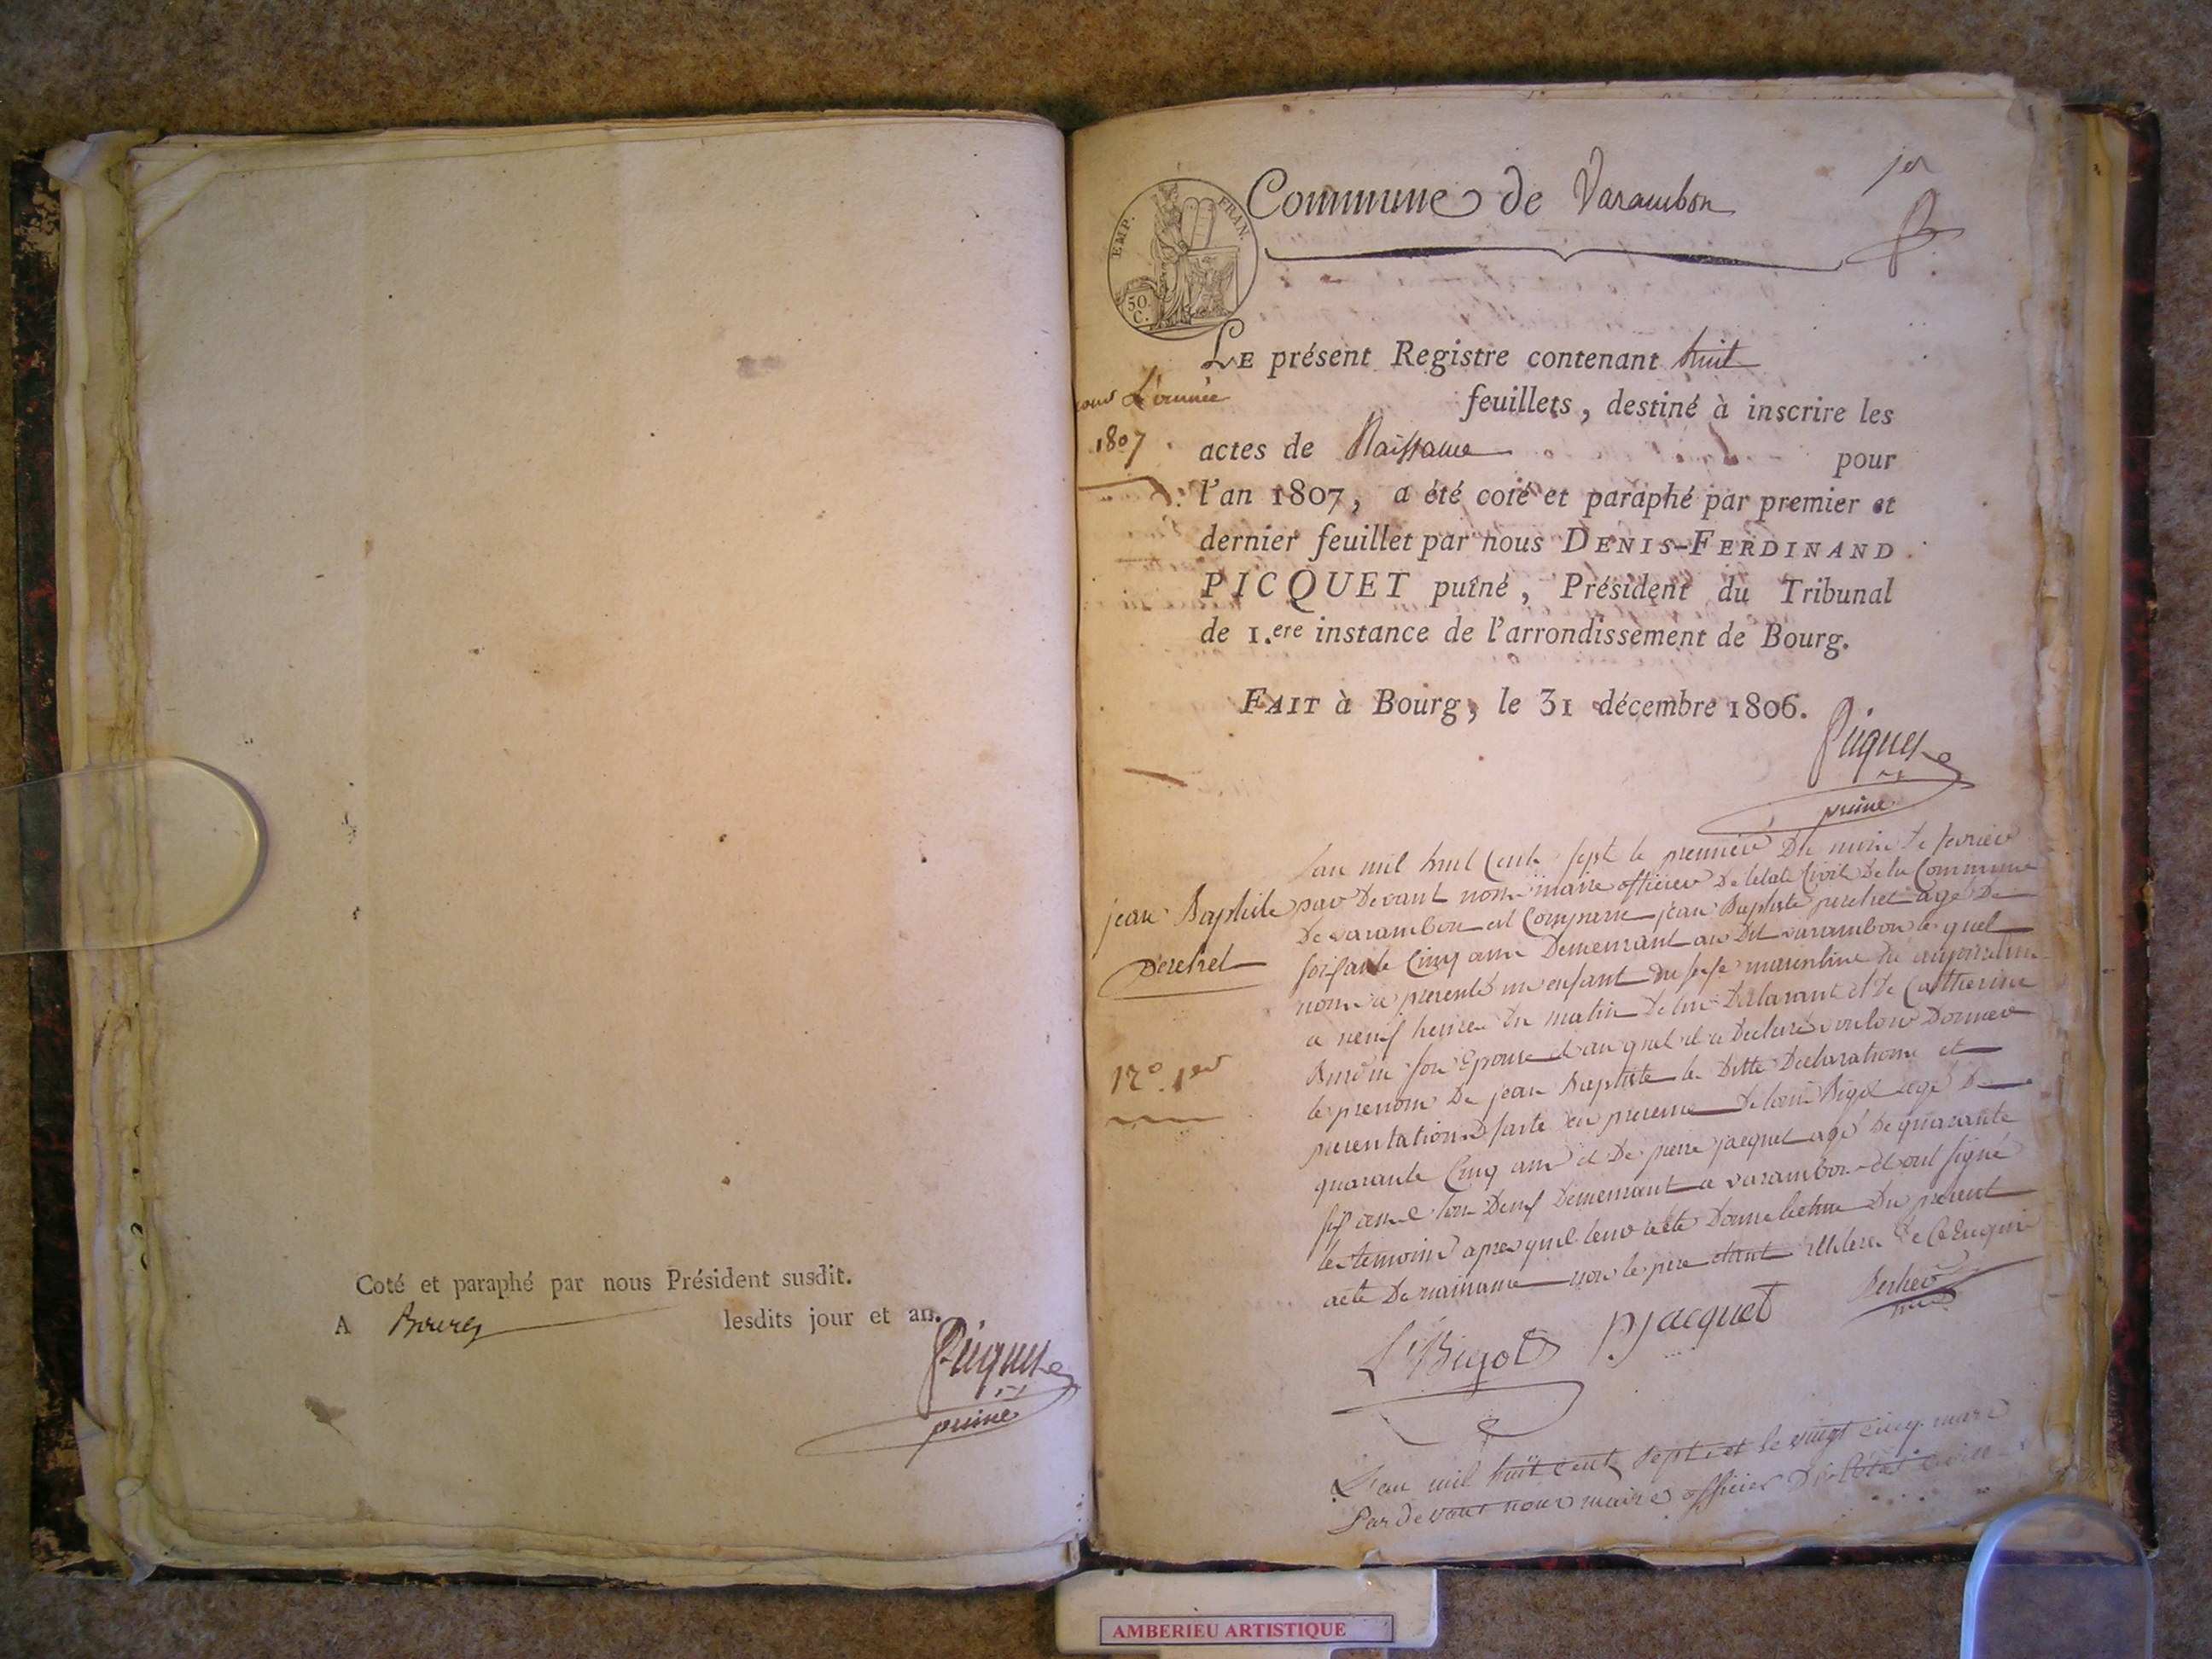 Coté et paraphé par nous Président susdit.
A Bourg lesdits jour et an.
Picquet
puiné
Commune de Varambon
1er
EMP. FRAN.
50.
C.
LE présent Registre contenant huit
feuillets, destiné à inscrire les
actes de Naissance pour
l'an 1807, a été coté et paraphé par premier et
dernier feuillet par nous DENIS-FERDINAND
PICQUET puîné, Président du Tribunal
de 1.ere instance de l'arrondissement de Bourg.
FAIT à Bourg, le 31 décembre 1806.
Picquet
puiné
pour L'année
1807
jean Baptiste
Perchet
N° 1er
L'an mil huit Cent sept le premier du mois de fevrier
par devant nous maire officier De letat Civil De la Commune
De varambon est Comparu jean Baptiste perchet agé De
soixante Cinq ans Demeurant au Dit varambon le quel
nous a presenté un enfant du sexe masculine né aujourdhui
a neuf heures du matin De lui Declarant et De Catherine
son Epouse et au quel il a Declaré vouloir Donner
le prenom De jean Baptiste les Ditte Declaration et
presentation faite en presence De Bigot agé De
quarante Cinq ans et De pierre jacquet agé De quarante
six ans tous Deux Demeurant a varambon et ont signé
les temoins apres quil leur a été Donné lecture Du present
acte De naissance non le pere etant illiteré De Ce Enquis
L Bigot
P Jacquet
L'an mil huit cent sept et le vingt cinq mars
Par devant nous maire officier De l'état civil
AMBERIEU ARTISTIQUE